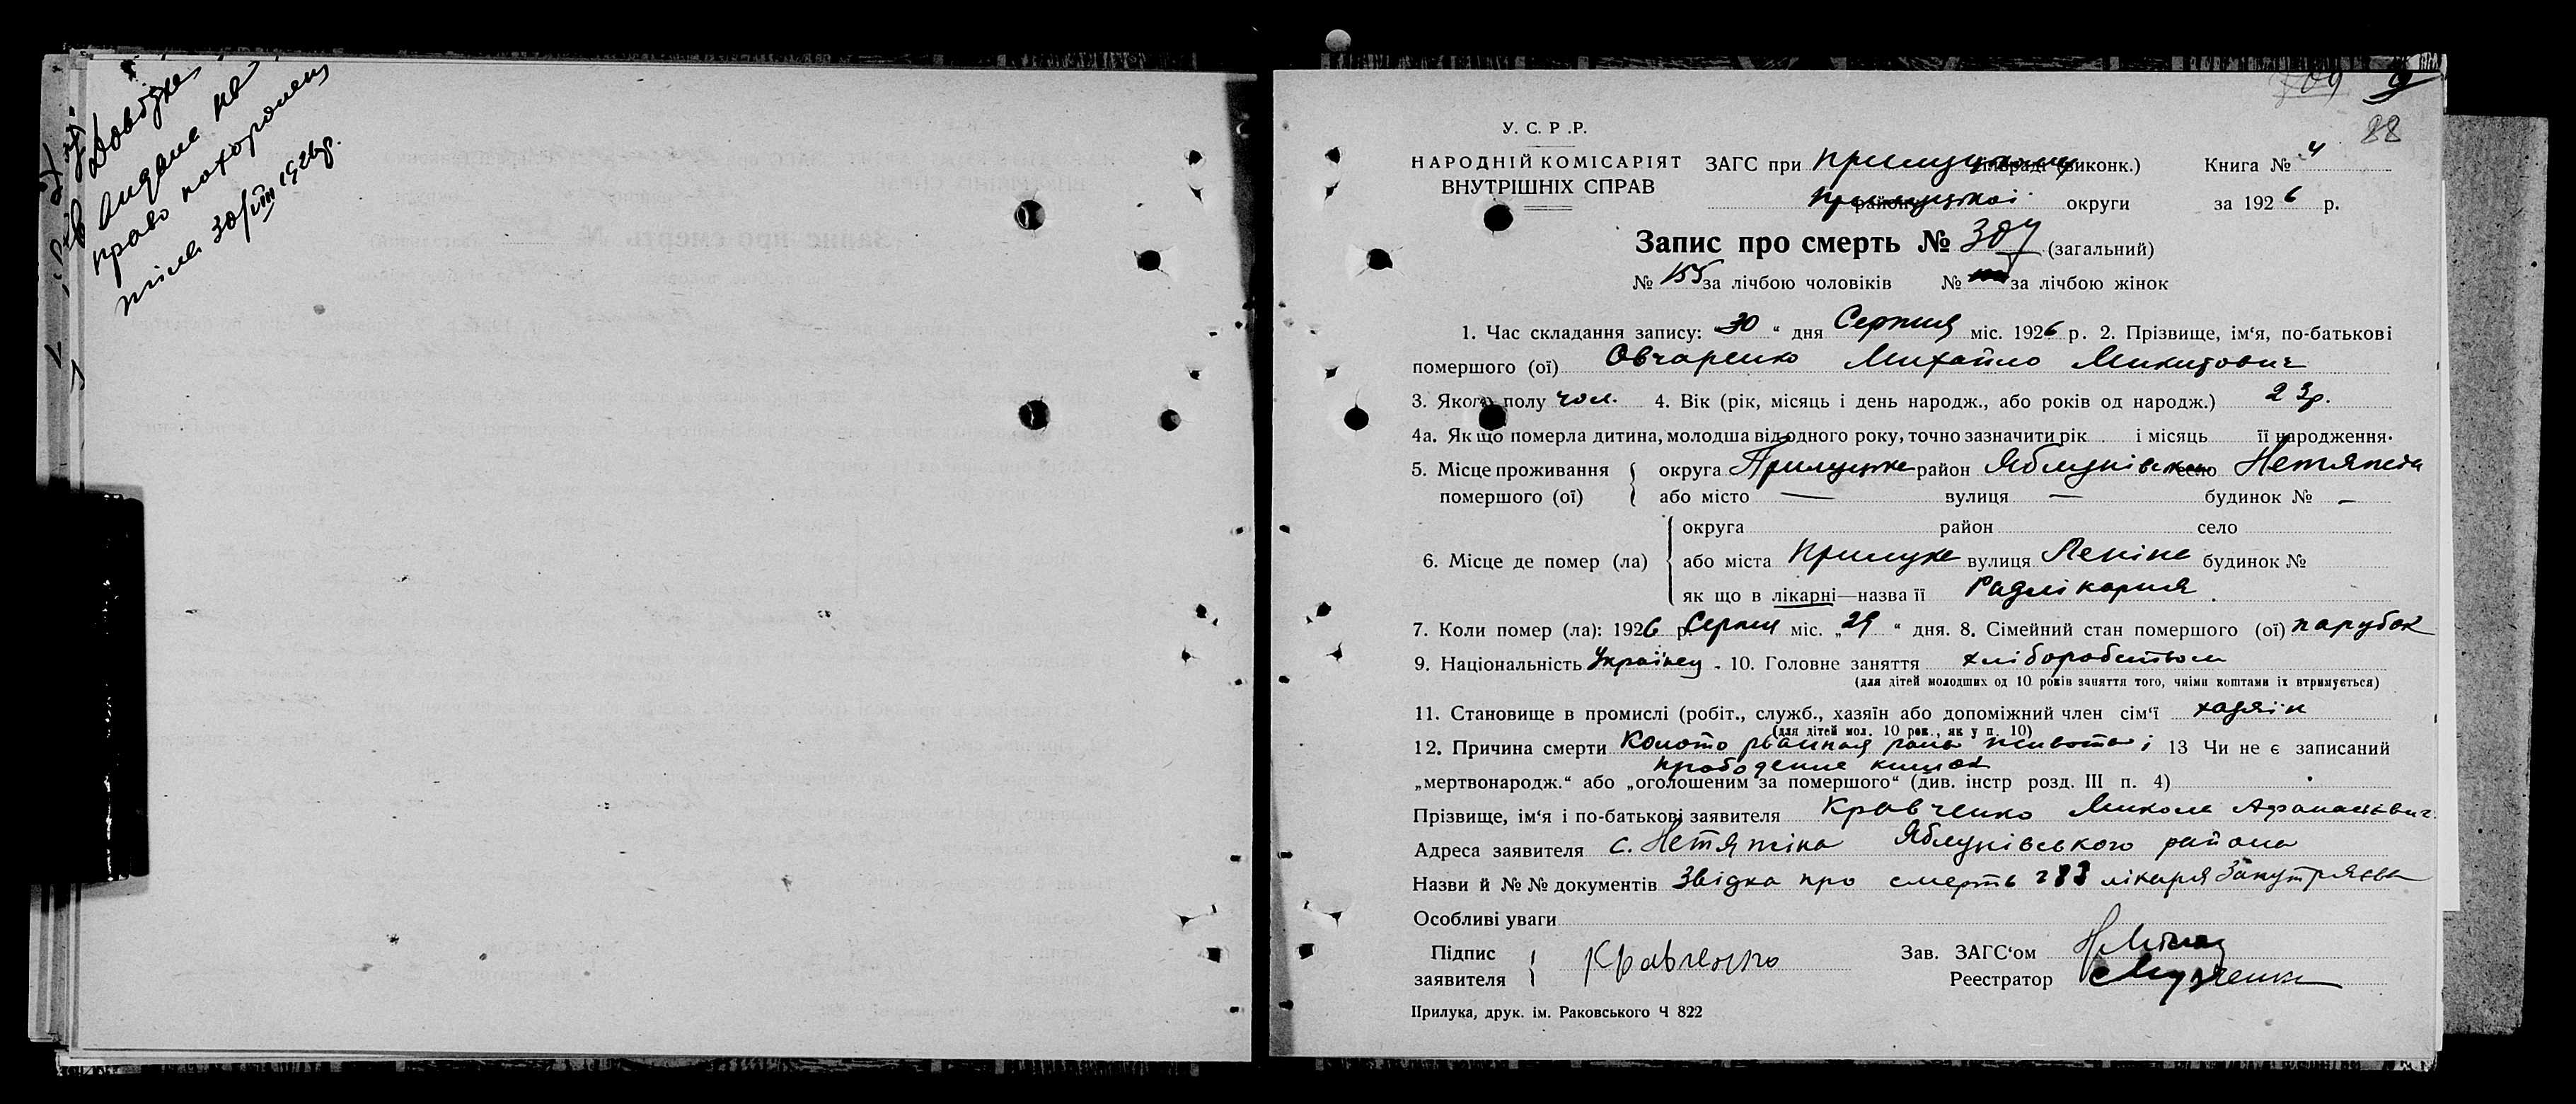 Довідка
видана на
право похорону
тіла 30/VIII 1926р.
88
У. С. Р. Р.
НАРОДНІЙ КОМІСАРІЯТ
ВНУТРІШНІХ СПРАВ
ЗАГС при Прилуцькому (виконк.) Книга № 4
Прилуцької округи за 1926 р.
Запис про смерть № 307 (загальний)
№ 155 за лічбою чоловіків № за лічбою жінок
1. Час складання запису: 30 “ дня Серпня міс. 1926 р. 2. Прізвище, ім‘я, по-батькові
помершого (ої) Овчаренко Михайло Микитович
3. Якого полу чол. 4. Вік (рік, місяць і день народж., або років од народж.) 23р.
4а. Як що померла дитина, молодша від одного року, точно зазначити рік і місяць її народження.
5. Місце проживання помершого (ої) { округа Прилуцька район Яблунівськ село Нетяжин
або місто — вулиця — будинок № —
6. Місце де помер (ла) { округа район село
або міста Прилуке вулиця Леніна будинок №
як що в лікарні—назва її Радлікарня.
7. Коли помер (ла): 1926 р. Серпня міс. „29“ дня. 8. Сімейний стан помершого (ої) парубок
9. Національність Українец. 10. Головне заняття хліборобством
(для дітей молодших од 10 років заняття того, чиїми коштами їх втримується)
11. Становище в промислі (робіт., служб., хазяїн або допоміжний член сім‘ї хазяїн
(для дітей мол. 10 рок., як у п. 10)
12. Причина смерти Колото рванная рана живота і 13 Чи не є записаний
прободение кишок
„мертвонародж.“ або „оголошеним за помершого“ (див. інстр розд. III п. 4)
Прізвище, ім‘я і по-батькові заявителя Кравченко Микола Афанасієвич
Адреса заявителя с. Нетяжина Яблунівського района
Назви й №№ документів Звідка про смерть 283 лікаря Закутряєва
Особливі уваги
Підпис заявителя { Кравченко
Зав. ЗАГС‘ом
Реестратор
Прилука, друк. ім. Раковського Ч 822